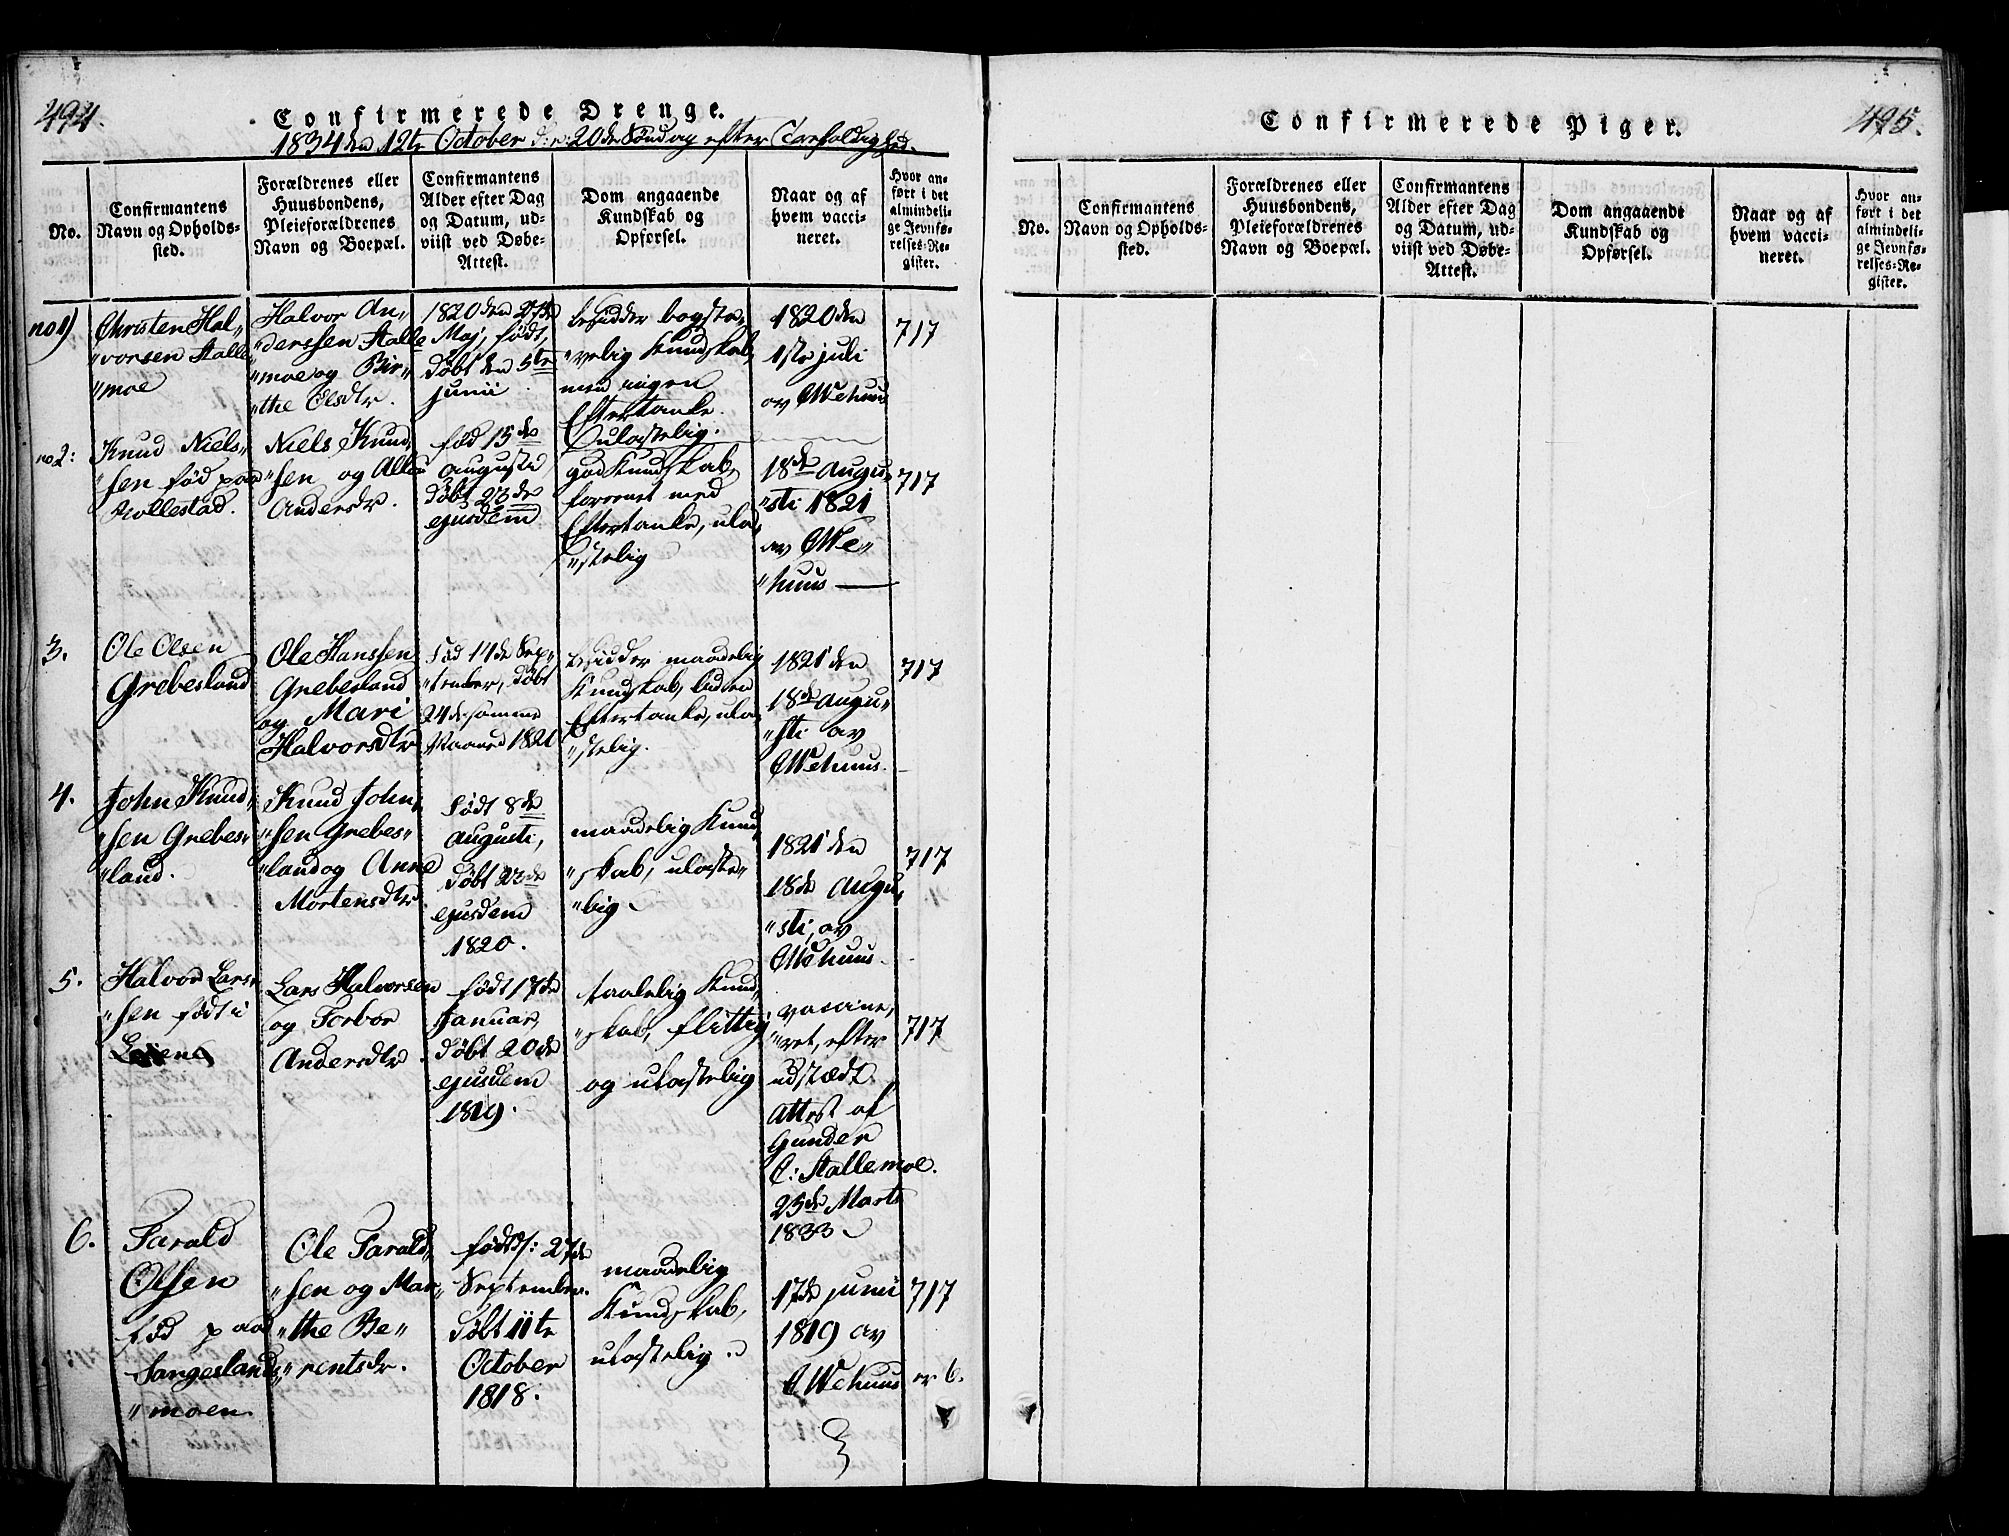 494.
Confirmerede Drenge.
1834 den 12te October d: 20de Søndag efter Trefoldighed.
No.
Confirmantens
Navn og Opholds-
sted.
Forældrenes eller
Huusbondens,
Pleieforældrenes
Navn og Boepæl.
Confirmantens
Alder efter Dag
og Datum, ud-
viist ved Døbe-
Attest.
Dom angaaende
Kundskab og
Opførsel.
Naar og af
hvem vacci-
neret.
Hvor an-
ført i det
almindeli-
ge Jevnfø-
relses-Re-
gister.
no 1)
Christen Hal„
„vorsen Stalle
„moe
Halvor An„
„derssen Stalle
„moe og Bir„
„the Olsdtr.
1820 den 27de
Maj, født,
døbt den 5te
junii
besidder bogsta„
„velig Kundskab,
men ingen
Eftertanke.
Oulastelig.
1820 den
1ste juli
av OWehuus
717
no 2:
Knud Niels„
„sen fød paa
Hollestad.
Niels Knud„
„sen og
Andersdr.
fød 15de
augusti,
døbt 23de
ejusdem
god Kundskab,
forenet med
Eftertanke, ula„
„stelig
18de Augu„
„sti 1821
av OWe„
„huus
717
3.
Ole Olsen
Grebesland
Ole Hanssen
Grebesland
og Mari
Halvorsdtr
Fød 14de Sep„
„tember, døbt
24de samme
Maaned 1820
besidder maadelig
Kundskab, liden
Eftertanke, ula„
„stelig.
1821 den
18de augu„
„sti av
OWehuus.
717
4.
John Knud„
„sen Grebes„
„land.
Knud John„
„sen Grebes„
„land og Anne
Mortensdtr
Født 8de
augusti,
døbt 23de
ejusdem
1820.
maadelig Kund„
„skab, ulaste„
„lig
1821 den
18de Augu„
„sti, av
OWehuus
717
5.
Halvor Lars„
„sen født i
Lars Halvorsen
og Torbor
Andersdtr
født 17de
Januar,
døbt 20de
ejusdem
1819.
taalelig Kund„
„skab, flittig
og ulastelig
vaccine„
„ret, efter
udstædt
Attest af
Gunder
C: Stallemoe.
25de Marts
1833
717
6.
Tarald
Olsen
fød paa
Sangeslands„
„moen.
Ole Tarald„
„sen og Mar„
„the Be„
„rentsdr.
født d: 27de
September.
døbt 11te
October
1818.
maadelig
Kundskab,
ulastelig.
17de junii
1819 av
OWehuus
717
nr 6.
495.
Confirmerede Piger.
No.
Confirmantens
Navn og Opholds-
sted.
Forældrenes eller
Huusbondens,
Pleieforældrenes
Navn og Boepæl.
Confirmantens
Alder efter Dag
og Datum, ud-
viist ved Døbe-
Attest.
Dom angaaende
Kundskab og
Opførsel.
Naar og af
hvem vacci-
neret.
Hvor an-
ført i det
almindeli-
ge Jevnfø-
relses-Re-
gister.